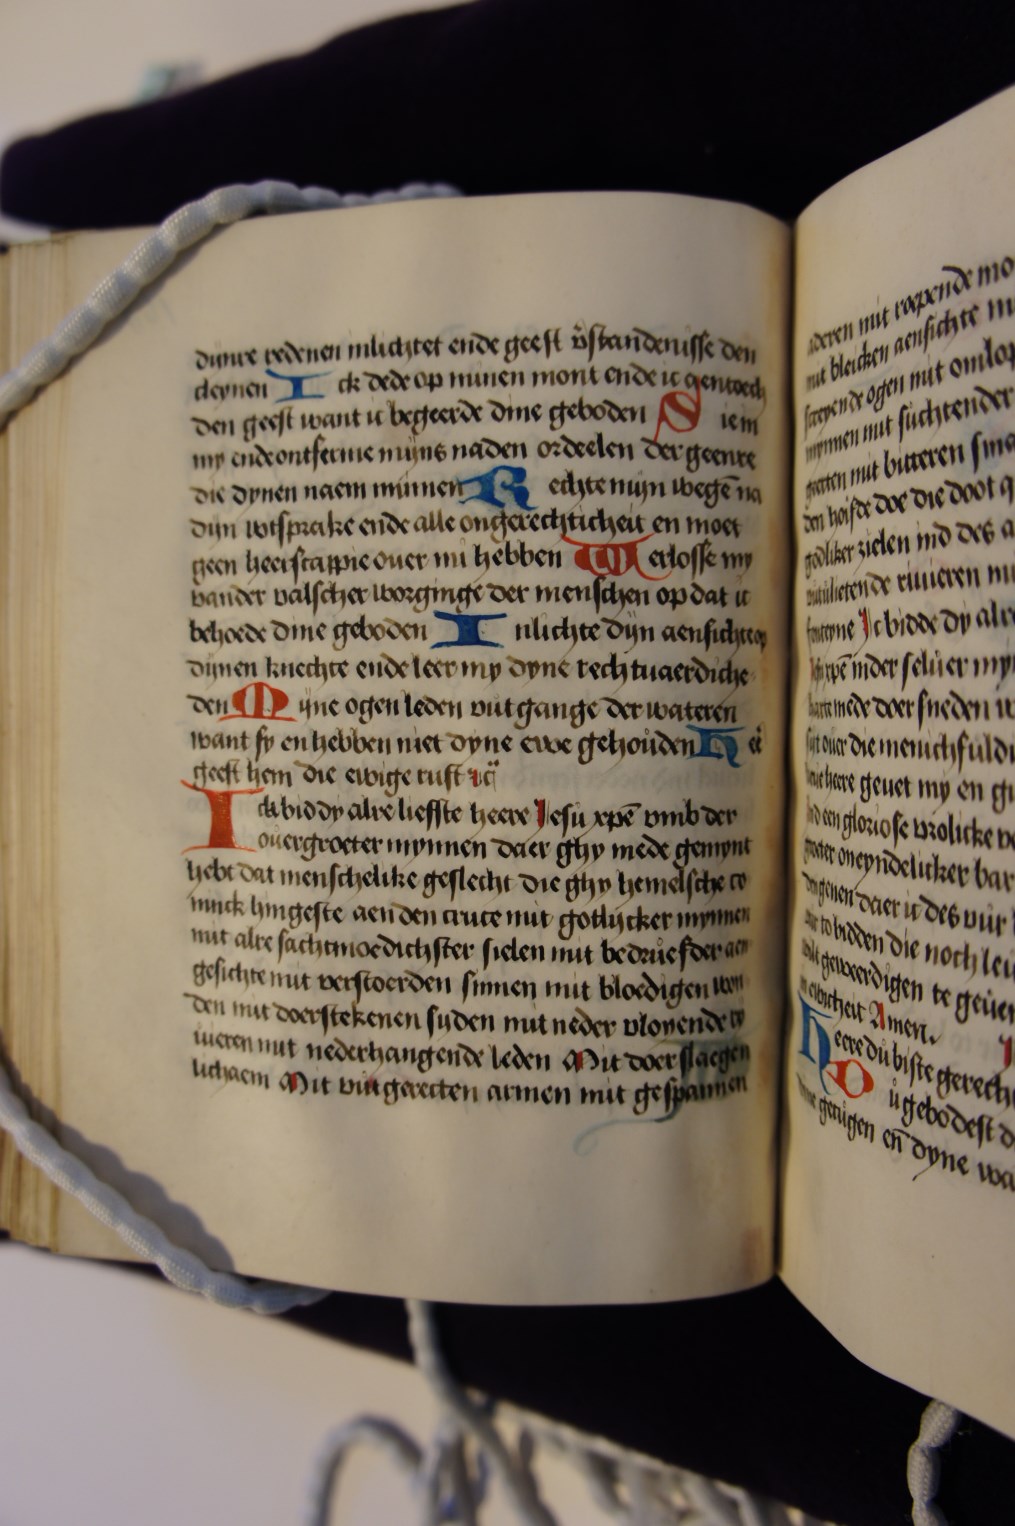 dinre redenen inlichtet ende geeft v̄standenisse den
cleynen Ick dede op minen mont ende ic gentoech
den geest want ic begeerde dine geboden Siem
my ende ontferme mijns na den ordeelen der geenre
die dynen naem minnen Rechte mijn wegē na
dijn wtsprake ende alle ongerechticheit en moet
geen heerscappie ouer mi hebben Werlosse my
vander valscher worginge der menschen op dat ic
behoede dine geboden Inlichte dijn aensichte op
dijnen knechte ende leer my dyne rechtuaerdiche
den Mijne ogen leden vut gange der wateren
want sy en hebben niet dyne ewe gehouden Heē
geeft hem die ewige rust
Ick bid dy alre liefste heere Jesu xpē vmb der
ouergroeter mynnen daer ghy mede gemynt
hebt dat menschelike geslecht die ghy hemelsche co
ninck hingeste aen den cruce mit gotlycker mynnen
mit alre sachtmoedichster sielen mit bedruefder aen
gesichte mit verstoerden sinnen mit bloedigen won
den mit doerstekenen syden mit neder vloyende ri
uieren mit nederhangende leden Mit doer slaegen
lichaem Mit vut gerecten armen mit gespannen
aderen mit roepende mo
mit bleicken aensichte m
screyende ogen mit omlop
mynnen mit suchtender
mit bitteren
den hoifde doe die doot
godliker zielen ind des a
vutulietende riuieren mi
fonteyne Jc bidde dy alre
xpē inder seluer myn
harte mede doer sneden
ouer die menichfuldi
heere geuet my en gu
ind een gloriose vrolicke
oneyndelicker bar
daer ic des vur
to bidden die noch leu
geweerdigen te geuen
Amen.
Heere du biste gerech
Du gebodest d
getugen en̄ dyne wa